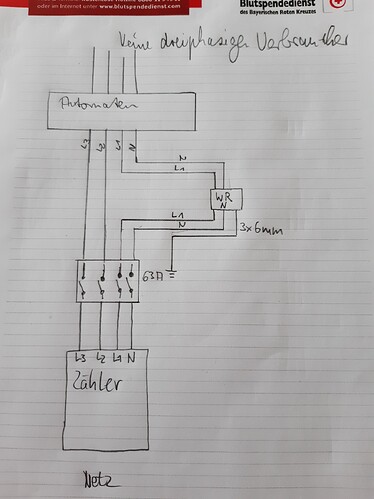 oder im Internet unter www.blutspendedienst.com
Blutspendedienst
des Bayerischen Roten Kreuzes
Keine dreiphasigen Verbraucher
Automaten
L3
L2
L1
N
N
L1
WR
N
L1
N
3x6mm
63A
L3 L2 L1 N
Zähler
Netz